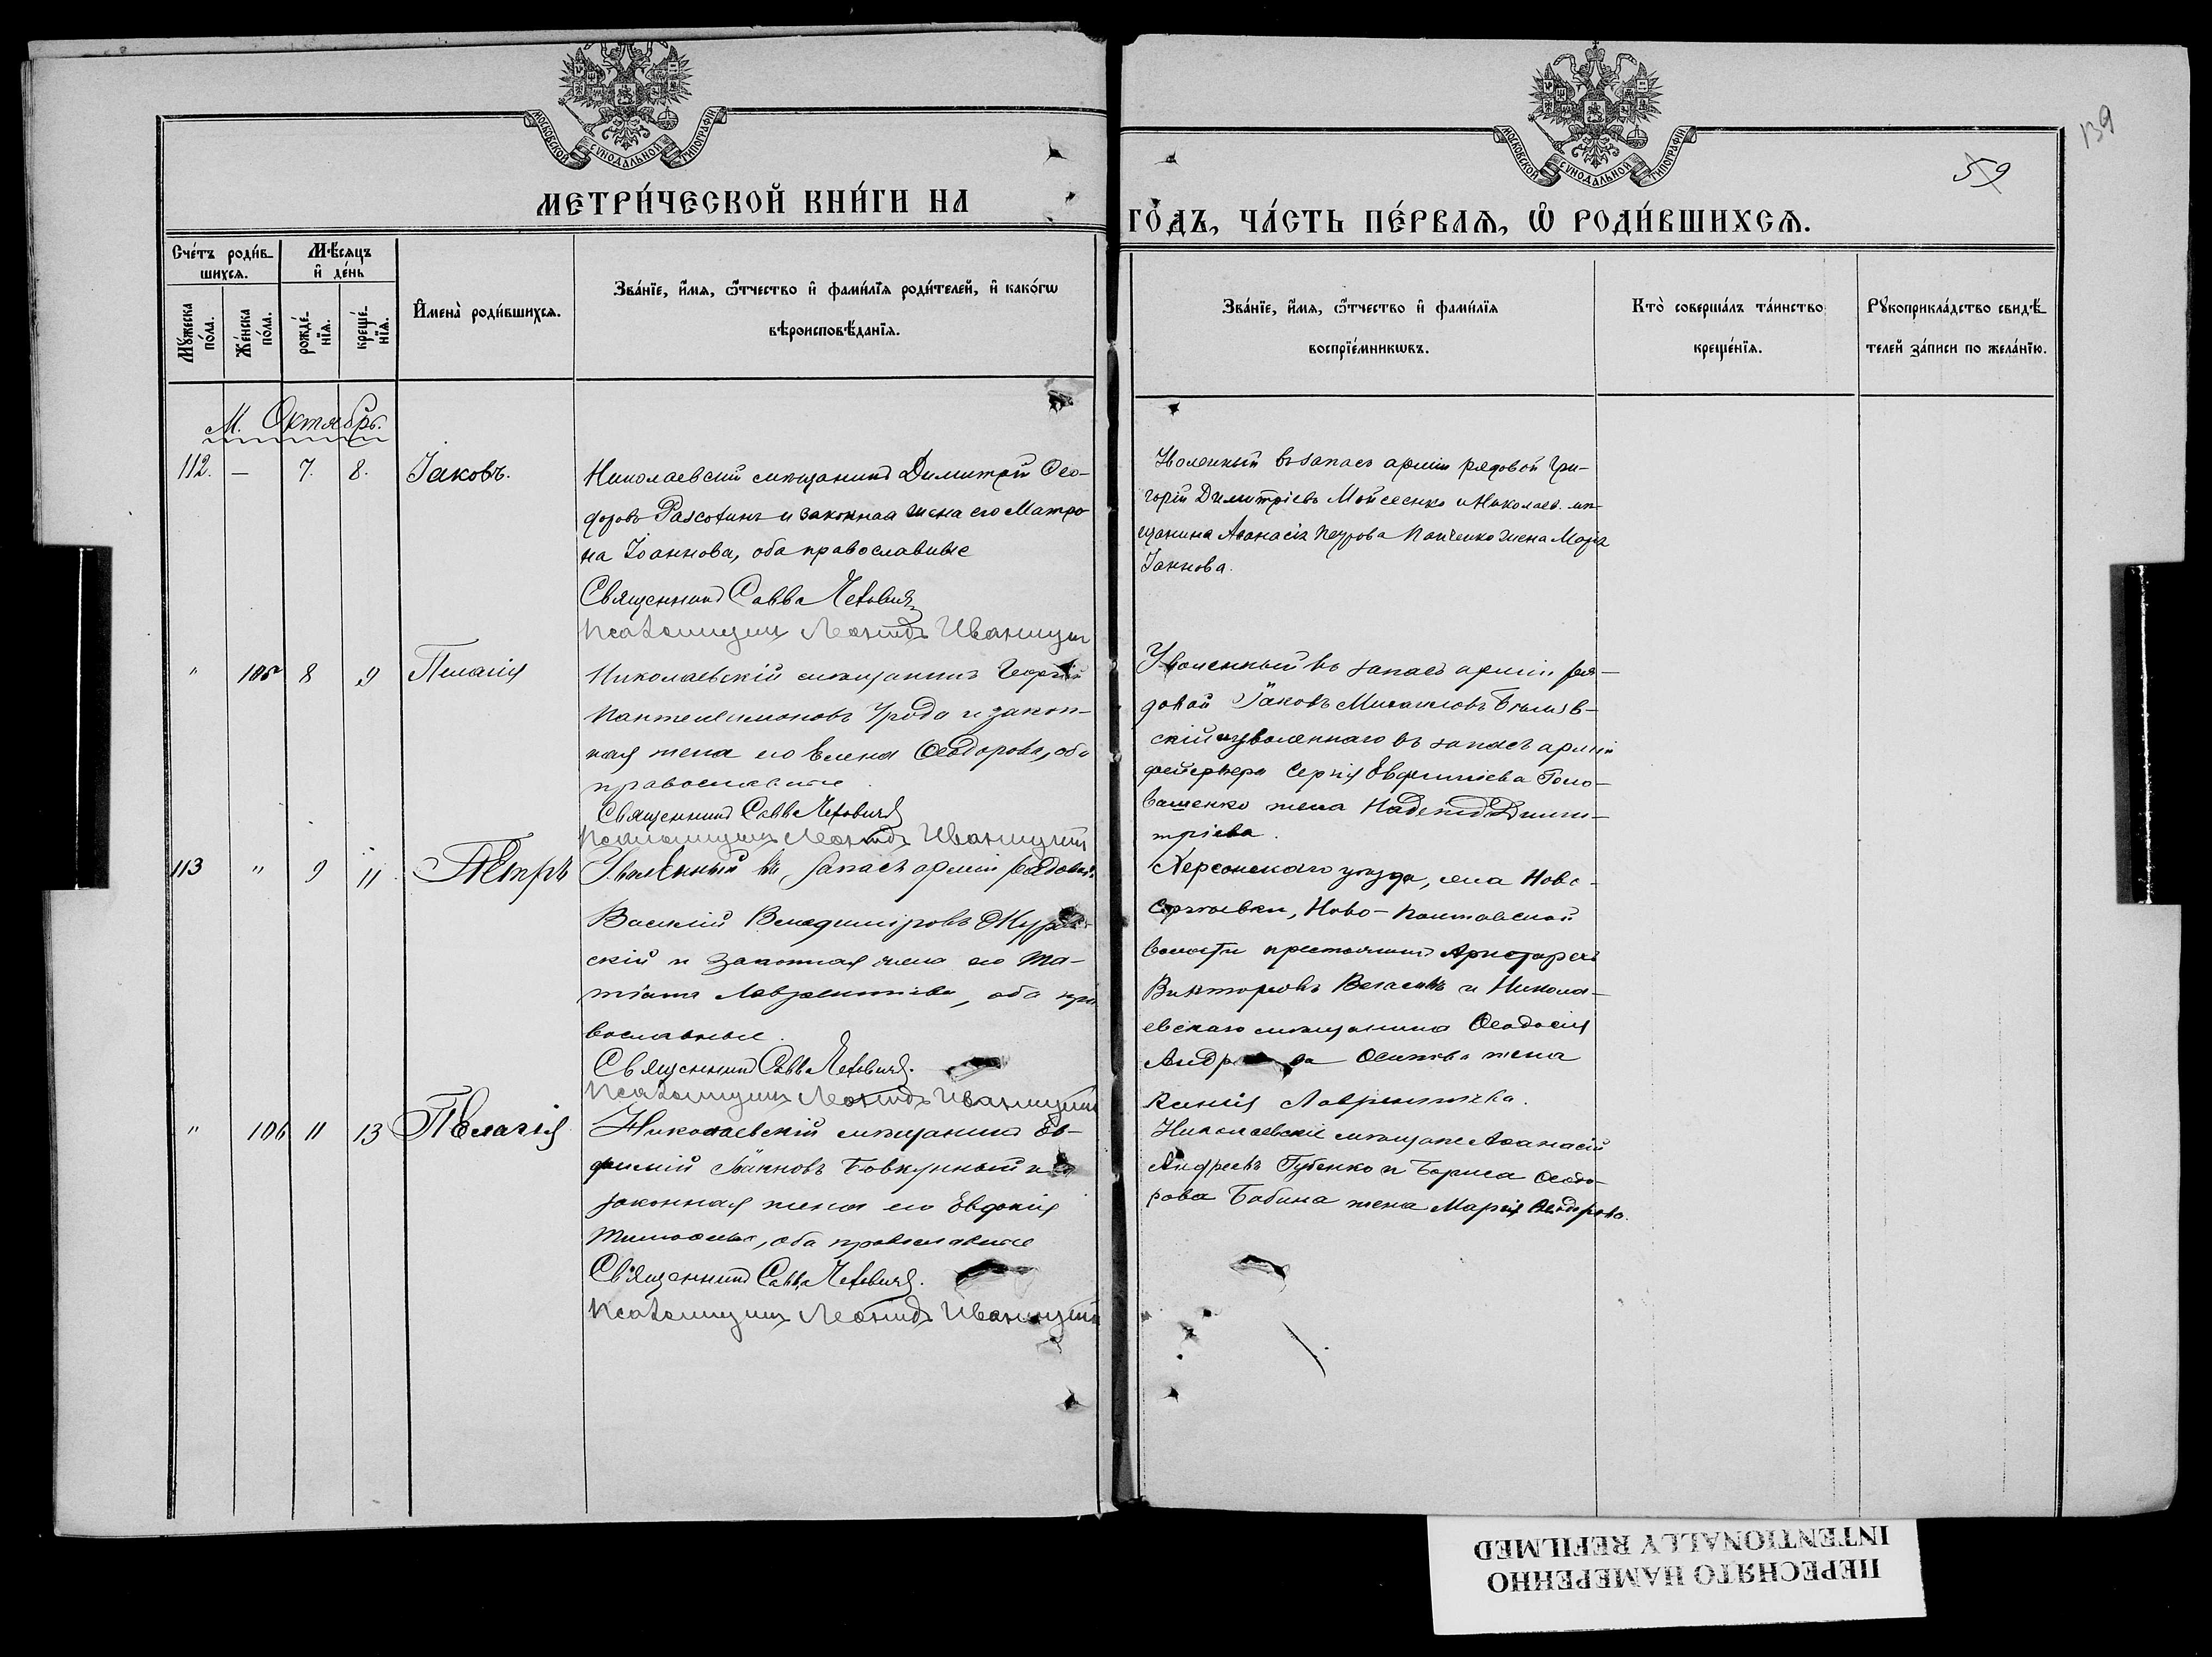 139
59
МОСКОВСКОЙ СѴНОДАЛЬНОЙ ТИПОГРАФІИ
МОСКОВСКОЙ СѴНОДАЛЬНОЙ ТИПОГРАФІИ
МЕТРИ́ЧЕСКОЙ КНИ́ГИ НА
ГО́ДЪ, ЧА́СТЬ ПЕ́РВАѦ, Ѡ҆ РОДИ́ВШИХСѦ.
Сче́тъ роди́в-
шихсѧ.
Мѣ́сѧцъ
и҆ де́нь
Мꙋ́жеска
по́ла.
Же́нска
по́ла.
рожде́-
нїѧ.
креще́-
нїѧ.
И҆мена̀ роди́вшихсѧ.
Зва́нїе, и҆́мѧ, ѻ҆́тчество и҆ фами́лїѧ роди́телей, и҆ како́гѡ
вѣроисповѣ́данїѧ.
Зва́нїе, и҆́мѧ, ѻ҆́тчество и҆ фами́лїѧ
воспрїе́мникѡвъ.
Кто̀ соверша́лъ та́инство
креще́нїѧ.
Рꙋкоприкла́дство свидѣ́-
телей за́писи по жела́нїю.
М. Октябрь.
112. — 7. 8. Іаковъ.
Николаевскій мѣщанинъ Димитрій Ѳео-
доровъ и законная жена его Матро-
на Іоаннова, оба православные
Священникъ Савва
Псаломщикъ Леонидъ Иваницкій
Уволенный въ запасъ арміи рядовой Гри-
горій Димитріевъ Мойсеенко и Николаев. мѣ-
щанина Аѳанасія Петрова Панченко жена Марія
Іаннова.
" 105 8 9 Пелагія
Николаевскій мѣщанинъ Георгій
Пантелеимоновъ и закон-
ная жена его Елена Ѳеодорова, оба
православные
Священникъ Савва
Псаломщикъ Леонидъ Иваницкій
Уволенный въ запасъ арміи ря-
довой Іаковъ Михаиловъ
скій и уволеннаго въ запасъ арміи
фейерверкера Сергія Евфиміева Голо-
ващенко жена Надежда Дими-
тріева.
113 " 9 11 Петръ
Уволенный въ запасъ арміи рядовой
Василій Владиміровъ
скій и законная жена его Та-
тіана Лаврентіева, оба пра-
вославные.
Священникъ Савва
Псаломщикъ Леонидъ Иваницкій
Херсонскаго уѣзда, села Ново-
Сергѣевки, Ново-Полтавской
волости крестьянинъ Аристархъ
Викторовъ и Никола-
евскаго мѣщанина Ѳеодосія
Осипова жена
Ксенія Лаврентіева.
" 106 11 13 Пелагія
Николаевскій мѣщанинъ Ев-
фимій Іанновъ Бовкунный и
законная жена его Евдокія
Тимоѳеева, оба православные
Священникъ Савва
Псаломщикъ Леонидъ Иваницкій
Николаевскіе мѣщане Аѳанасій
Андреевъ Губенко и Бориса Ѳеодо-
рова Бабина жена Марія Ѳеодорова.
ПЕРЕСНЯТО НАМЕРЕННО
INTENTIONALLY REFILMED